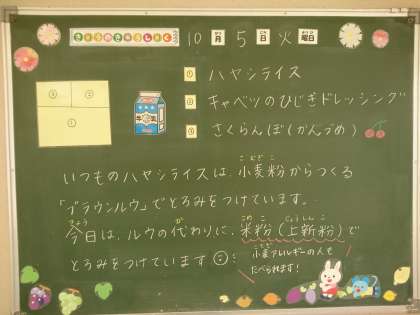 きょうのきゅうしょく 10月5日火曜日
① ハヤシライス
② キャベツのひじきドレッシング
③ さくらんぼ(かんづめ)
③ ②
①
牛乳
いつものハヤシライスは、小麦粉からつくる
「ブラウンルウ」でとろみをつけています。
今日は、ルウの代わりに、米粉(上新粉)で
とろみをつけています
小麦アレルギーの人も
たべられます!